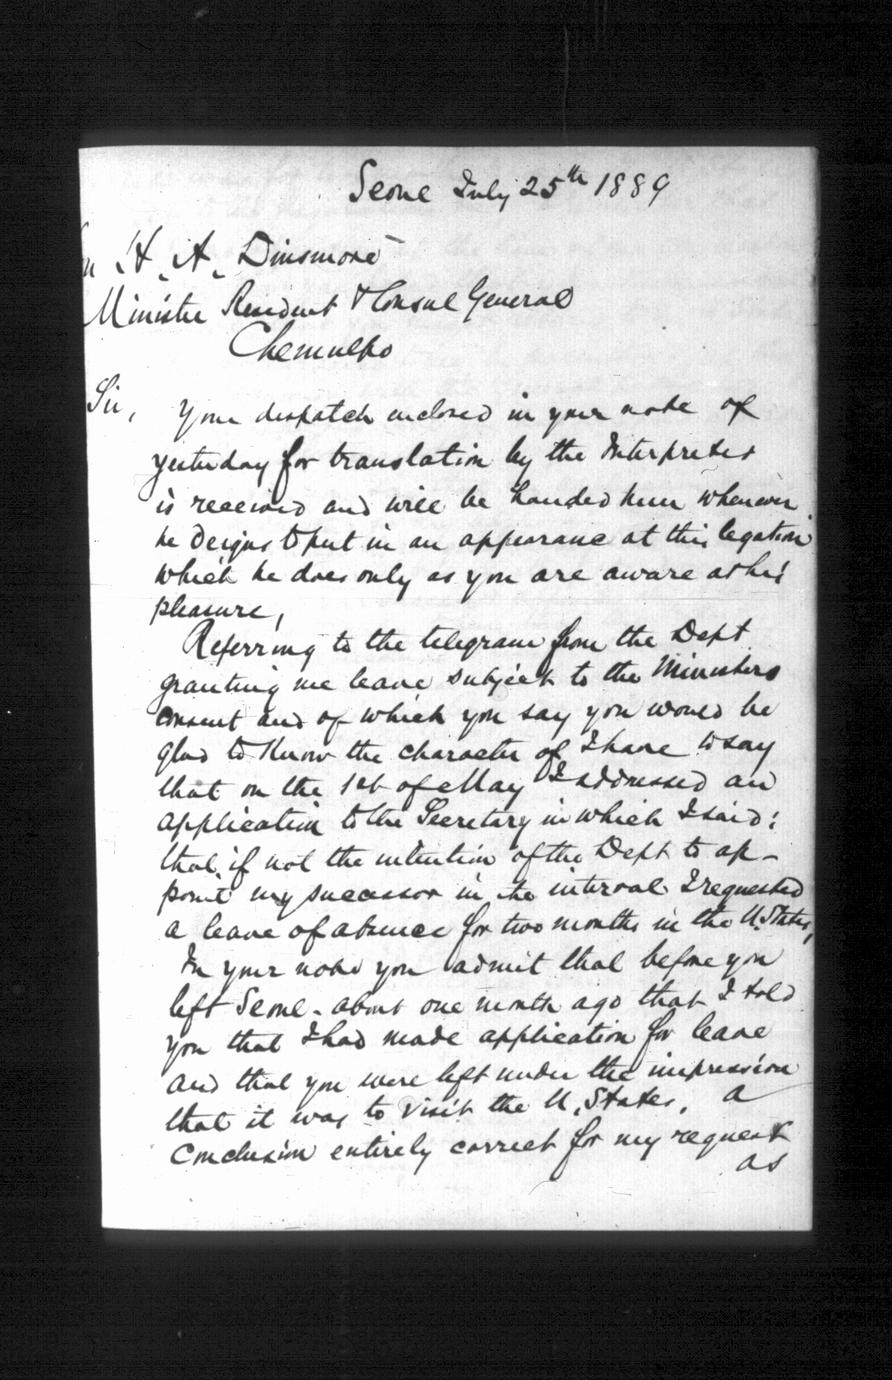 Seoul July 25th 1889
on H. A. Dinsmore
Minister Resident & Consul General
Chemulpo
Sir, Your dispatch inclosed in your note of
yesterday for translation by the Interpreter
is received and will be handed him whenever
he deigns to put in an appearance at this legation
which he does only as you are aware at his
pleasure,
Referring to the telegram from the Dept
granting me leave subject to the Ministers
consent and of which you say you would be
glad to know the character of I have to say
that on the 1st of May I addressed an
application to the Secretary in which I said:
that if not the intention of the Dept to ap-
point my successor in the interval I requested
a leave of absence for two months in the U. States,
In your note you admit that before you
left Seoul - about one month ago that I told
you that I had made application for leave
and that you were left under the impression
that it was to visit the U. States. a
conclusion entirely correct for my request
as